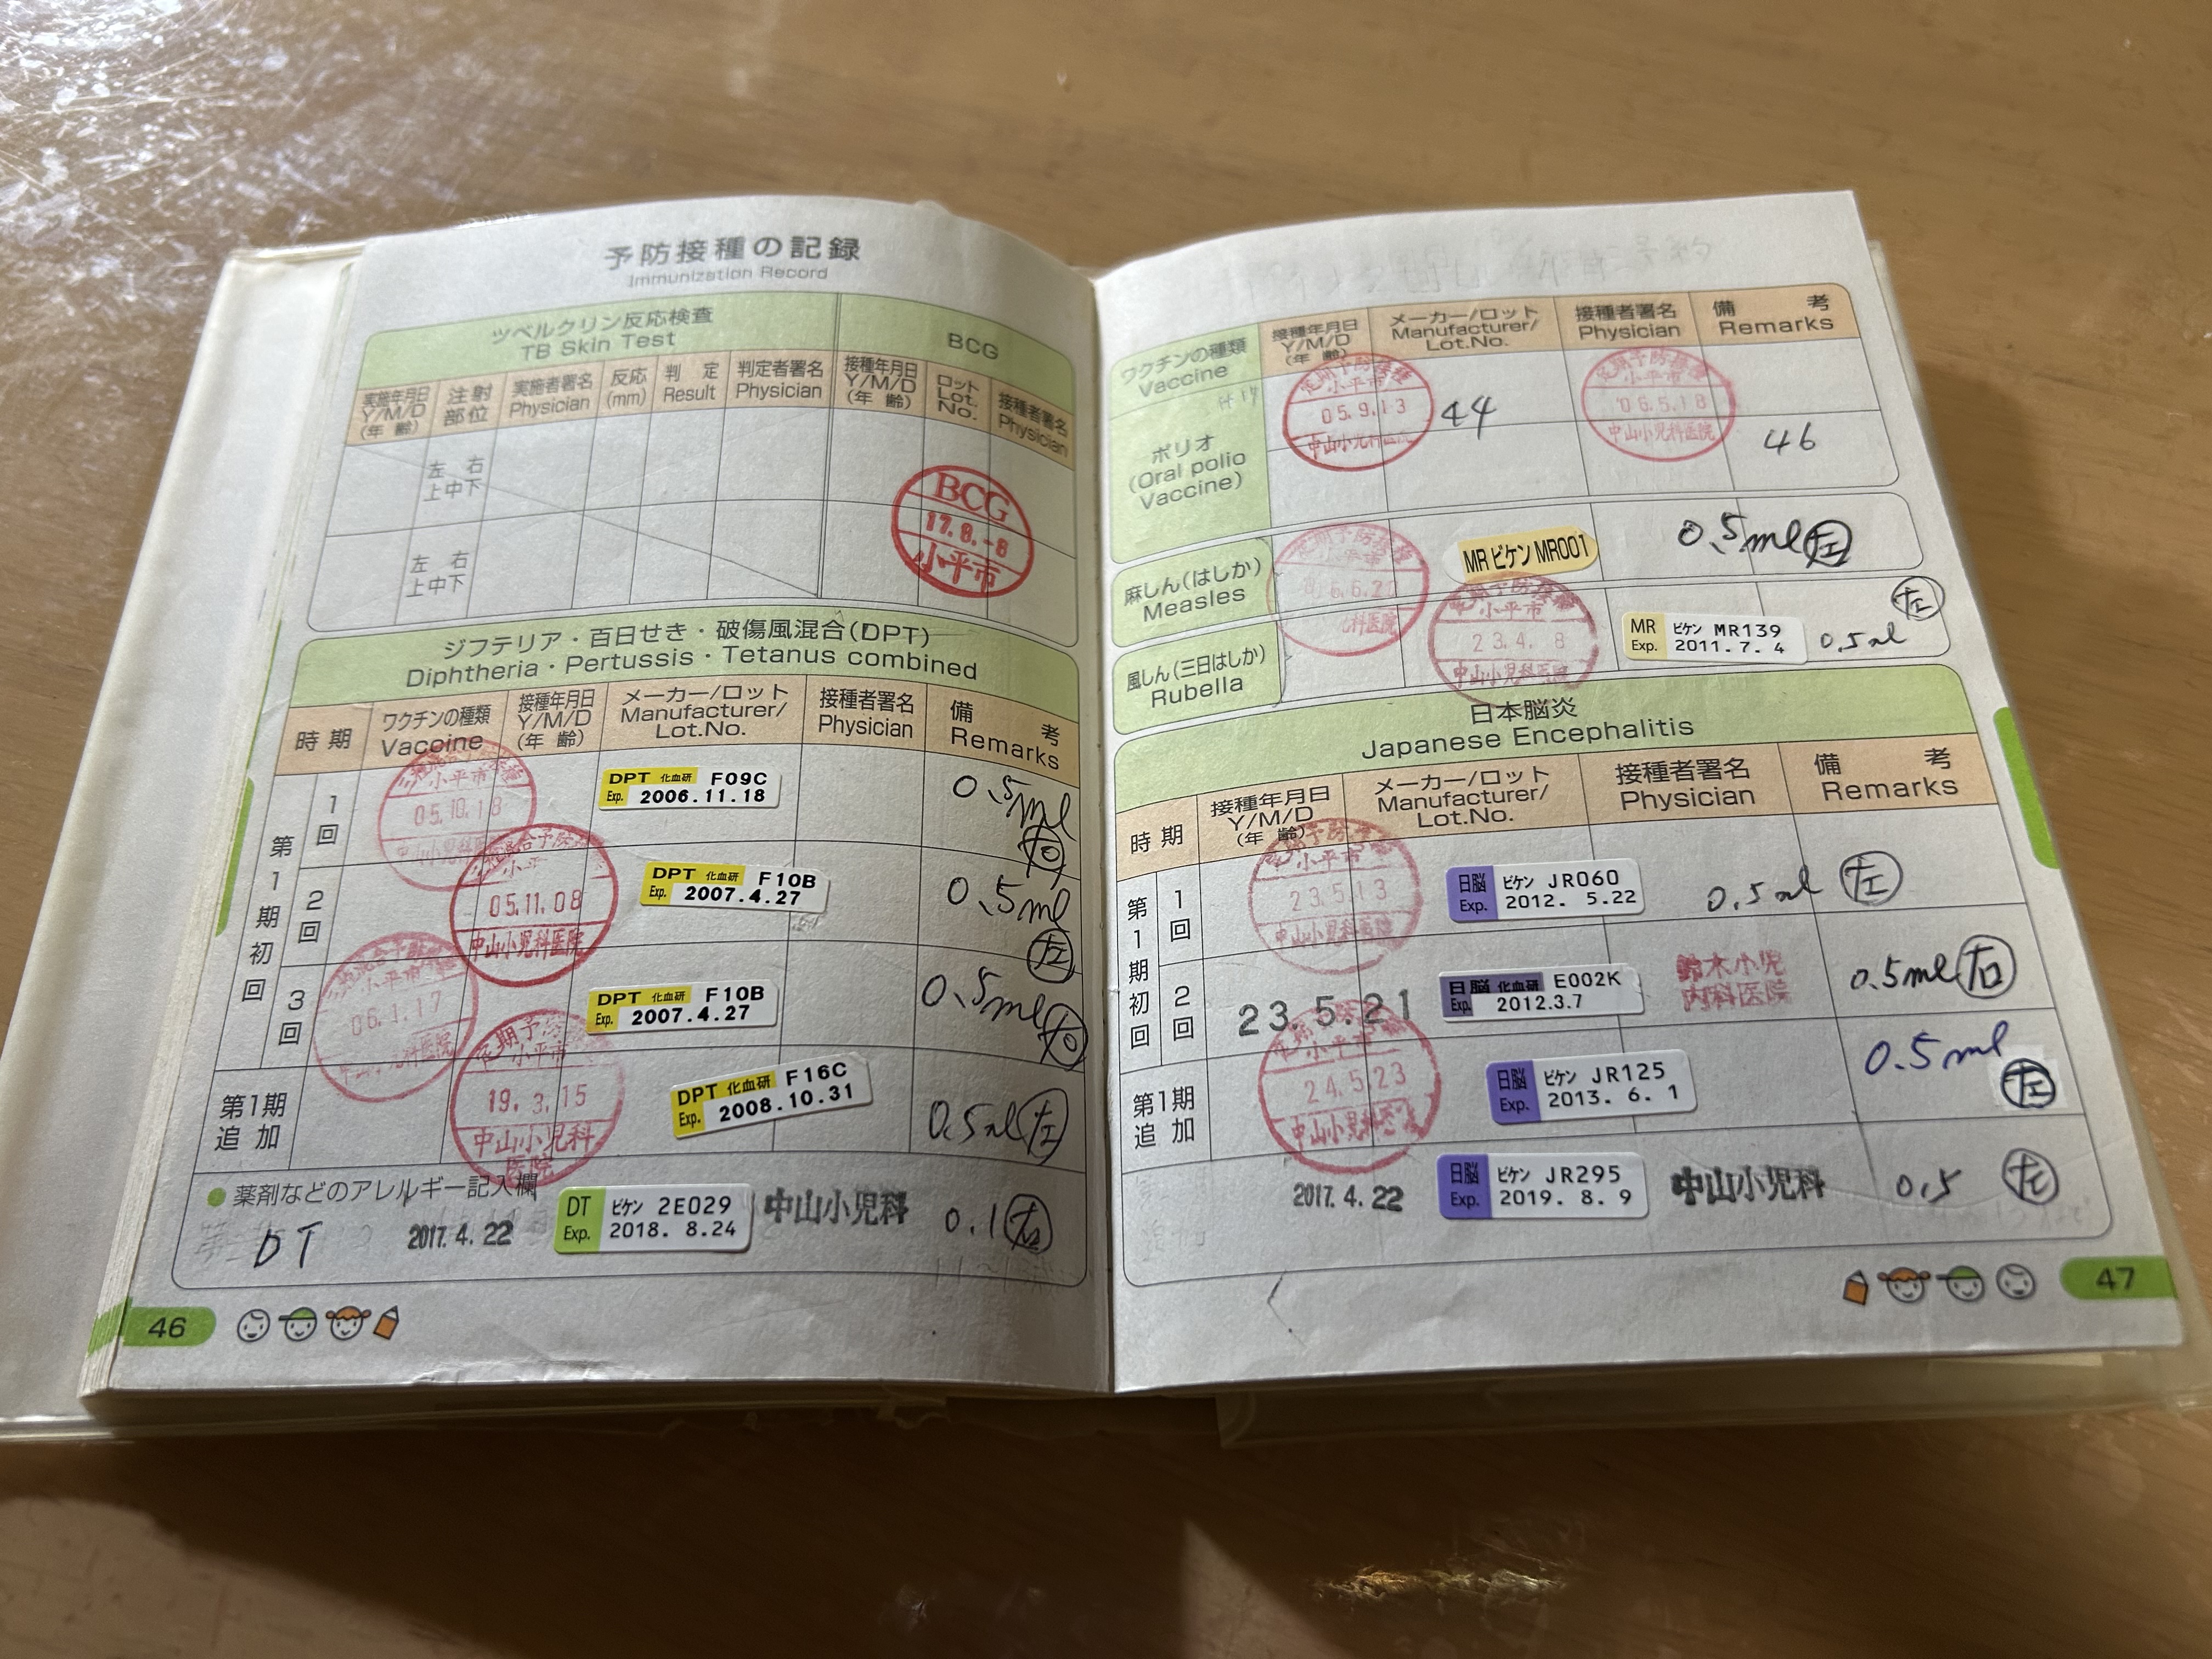 予防接種の記録
Immunization Record
ツベルクリン反応検査
TB Skin Test
BCG
実施年月日
Y/M/D
(年 齢)
注射
部位
実施者署名
Physician
反応
(mm)
判 定
Result
判定者署名
Physician
接種年月日
Y/M/D
(年 齢)
ロット
Lot.
No.
接種者署名
Physician
左 右
上中下
左 右
上中下
BCG
17.8.-8
小平市
ジフテリア・百日せき・破傷風混合(DPT)
Diphtheria・Pertussis・Tetanus combined
時 期
ワクチンの種類
Vaccine
接種年月日
Y/M/D
(年 齢)
メーカー/ロット
Manufacturer/
Lot.No.
接種者署名
Physician
備 考
Remarks
第1期初回
1回
小平市
05.10.18
DPT 化血研 F09C
Exp. 2006.11.18
0.5ml
右
2回
05.11.08
中山小児科医院
DPT 化血研 F10B
Exp. 2007.4.27
0.5ml
左
3回
小平市
06.1.17
DPT 化血研 F10B
Exp. 2007.4.27
0.5ml 右
第1期
追 加
定期予防
小平市
19.3.15
中山小児科
医院
DPT 化血研 F16C
Exp. 2008.10.31
0.5ml 左
●薬剤などのアレルギー記入欄
DT
2017.4.22
DT ビケン 2E029
Exp. 2018. 8.24
中山小児科
0.1 右
46
ワクチンの種類
Vaccine
接種年月日
Y/M/D
(年 齢)
メーカー/ロット
Manufacturer/
Lot.No.
接種者署名
Physician
備 考
Remarks
ポリオ
(Oral polio
Vaccine)
定期予防接種
小平市
05.9.13
中山小児科医院
44
定期予防接種
小平市
'06.5.18
中山小児科医院
46
麻しん(はしか)
Measles
MR ビケン MR001
0.5ml 左
風しん(三日はしか)
Rubella
小平市
23.4. 8
中山小児科医院
MR ビケン MR139
Exp. 2011. 7. 4
0.5ml
左
日本脳炎
Japanese Encephalitis
時 期
接種年月日
Y/M/D
(年 齢)
メーカー/ロット
Manufacturer/
Lot.No.
接種者署名
Physician
備 考
Remarks
第1期初回
1回
小平市
23.5.13
中山小児科医院
日脳 ビケン JR060
Exp. 2012. 5.22
0.5ml 左
2回
23.5.21
日脳 化血研 E002K
Exp. 2012.3.7
鈴木小児
内科医院
0.5ml 右
第1期
追 加
小平市
24.5.23
中山小児科医院
日脳 ビケン JR125
Exp. 2013. 6. 1
0.5ml
左
2017.4.22
日脳 ビケン JR295
Exp. 2019. 8. 9
中山小児科
0.5 左
47